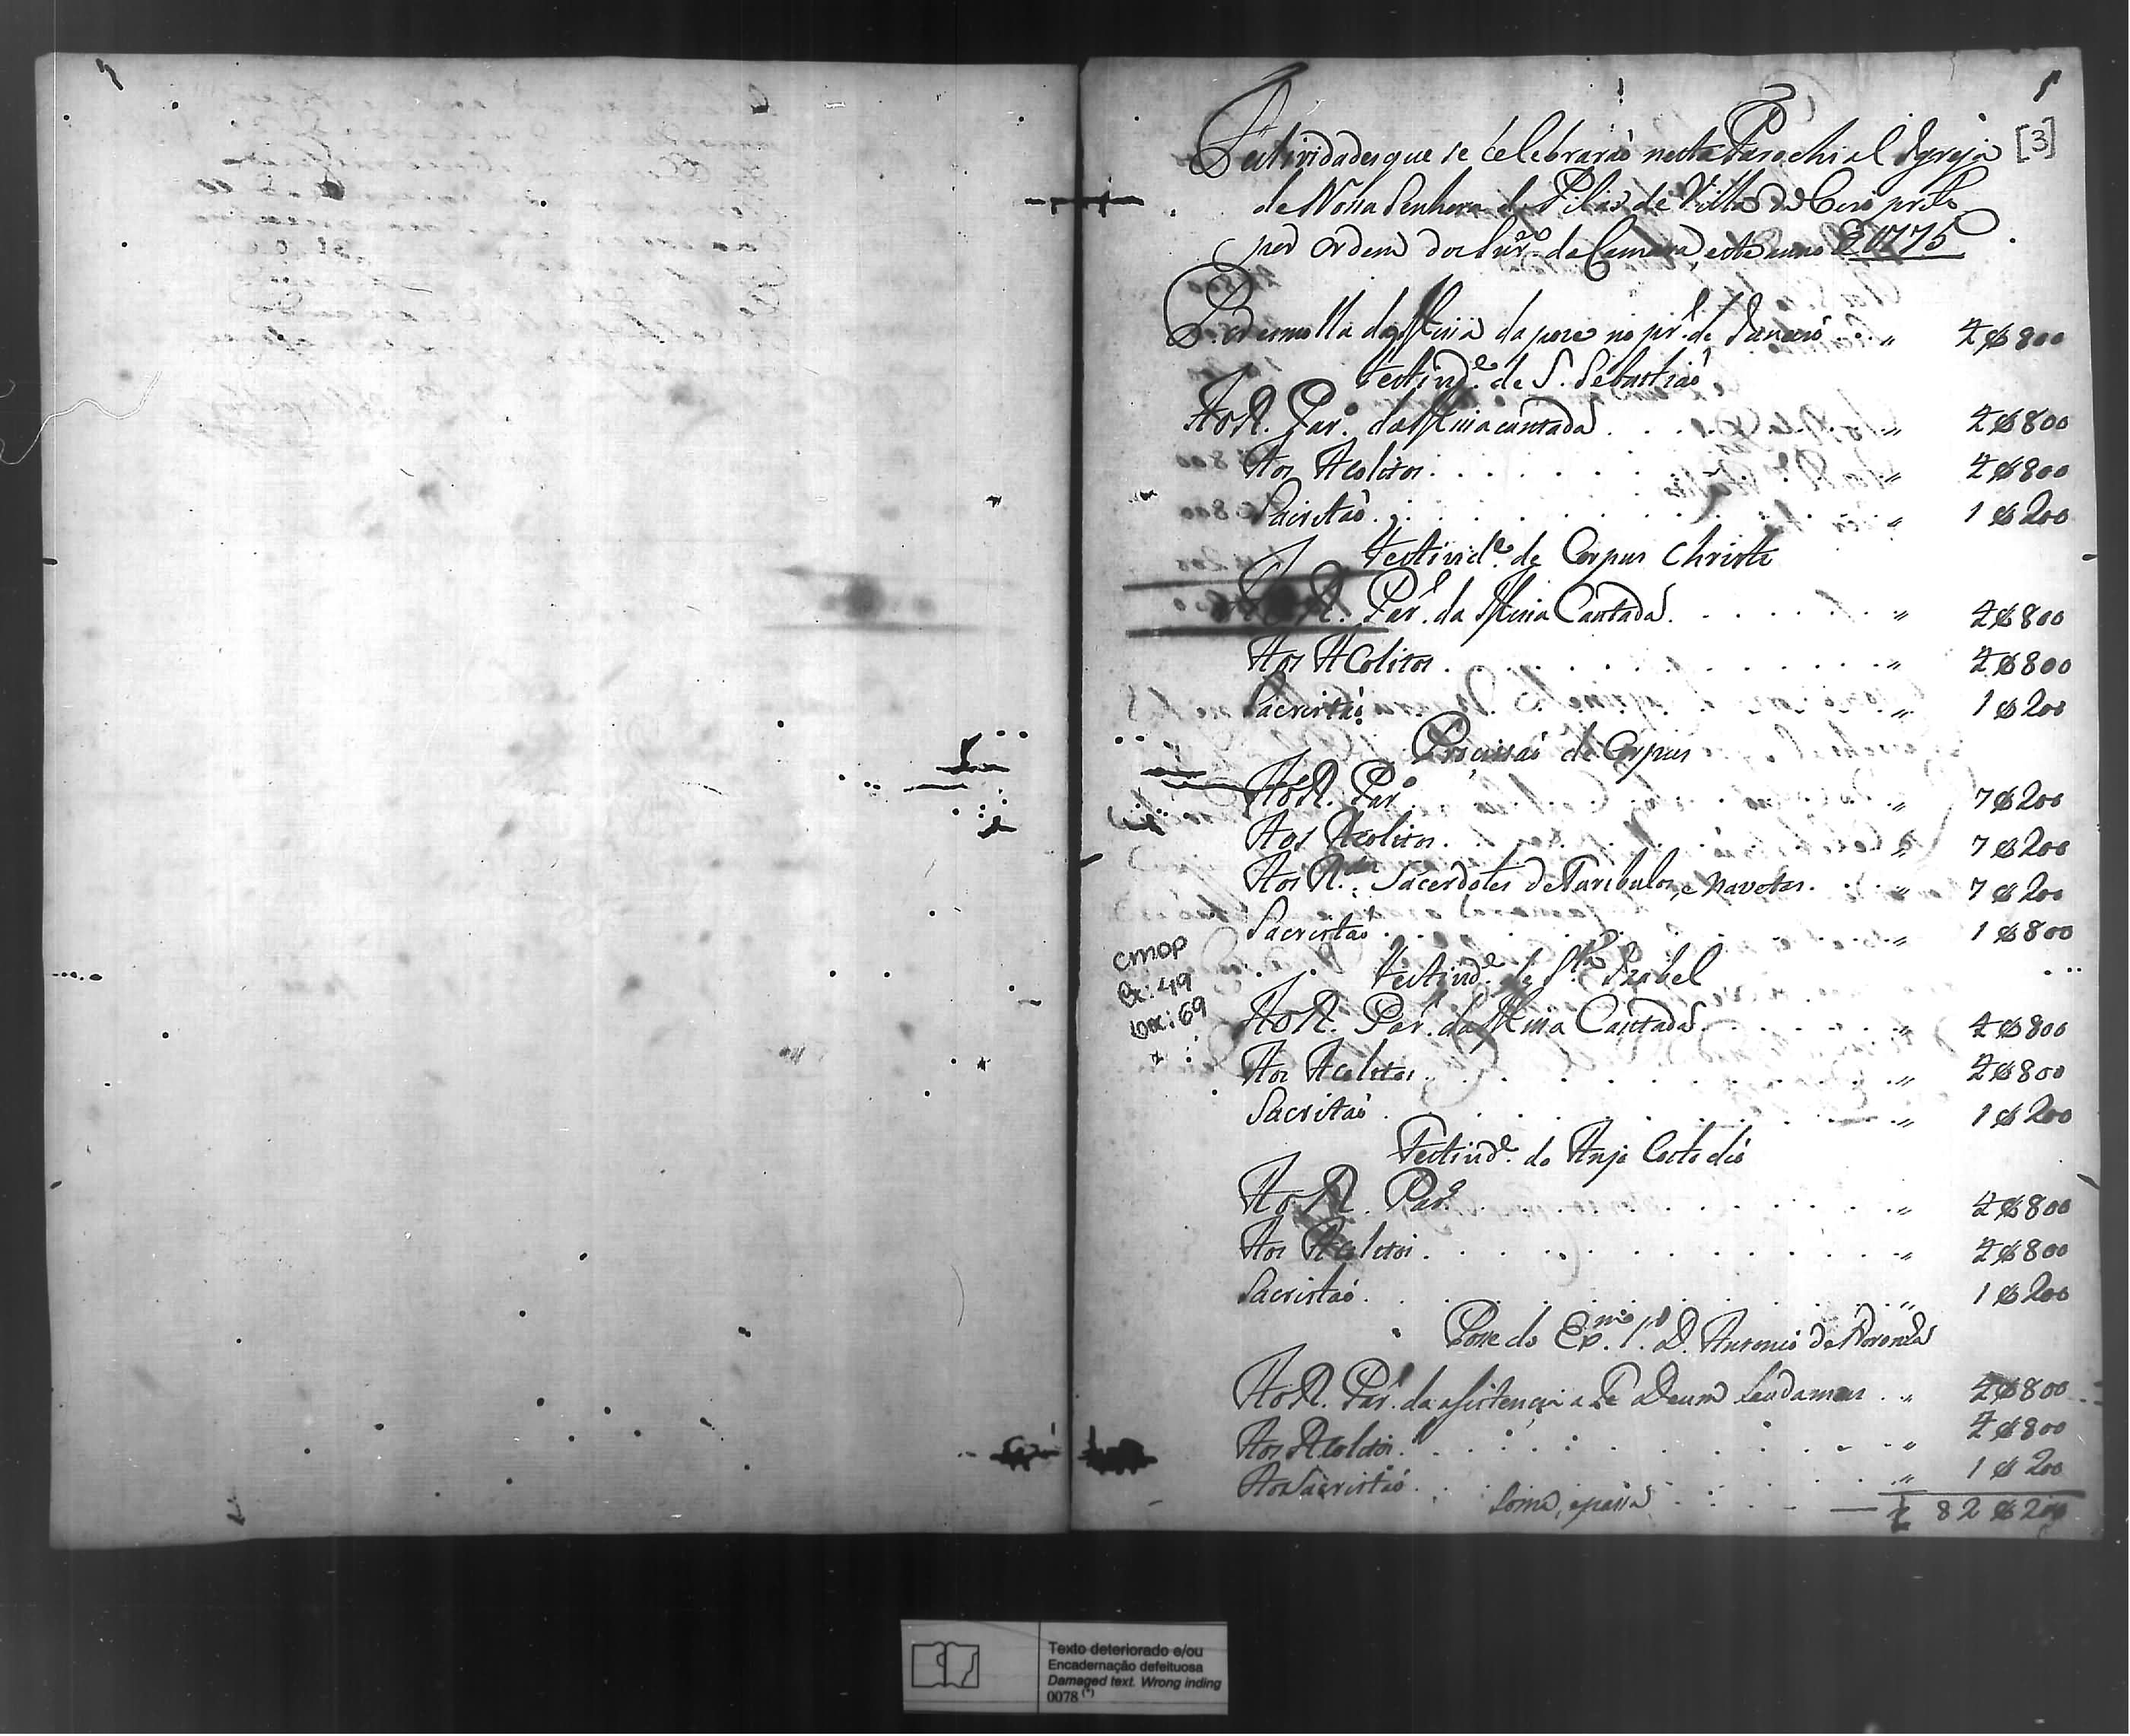 [3]
Festividades que se Celebraraõ nesta Parochial Igreja
de Nossa Senhora do Pilar de Villa Rica do Ouro preto
por ordem do Sen.do da Camara, este anno de 1775
Por esmolla da Missa da posse no pr.o de Janeiro . . " 4$800
Festivid.e de S. Sebastiaõ
Ao R. Par.o da Missa cantada . . . . " 4$800
Aos Acolitos . . . . . . " 4$800
Sacristaõ . . . . . . " 1$200
Festivid.e de Corpus Christe
Ao R. Par.o da Missa Cantada . . . . . . " 4$800
Aos Acolitos . . . . . . " 4$800
Sacristaõ . . . . . . " 1$200
Procissaõ de Corpus
Ao R. Par.o . . . . . . " 7$200
Aos Acolitos . . . . . . " 7$200
Aos R.dos Sacerdotes de Turibulos, e Navetas . . . " 7$200
Sacristaõ . . . . . . " 1$800
Festivid.e de S.ta Izabel
Ao R. Par.o da Missa Cantada . . . . . . " 4$800
Aos Acolitos . . . . . . " 4$800
Sacristaõ . . . . . . " 1$200
Festivid.e do Anjo Custodio
Ao R. Par.o . . . . . . " 4$800
Aos Acolitos . . . . . . " 4$800
Sacristaõ . . . . . . " 1$200
Posse do Ex.mo S.r D. Antonio de Noronha
Ao R. Par.o da asistencia a Te Deum Laudamus . . " 4$800
Aos Acolitos . . . . . . " 4$800
Aos Sacristaõ . . . . . . " 1$200
Soma, e passa . . . . — 82$200
CMOP
Cx: 49
Doc: 69
Texto deteriorado e/ou
Encadernação defeituosa
Damaged text. Wrong inding
0078 (*)